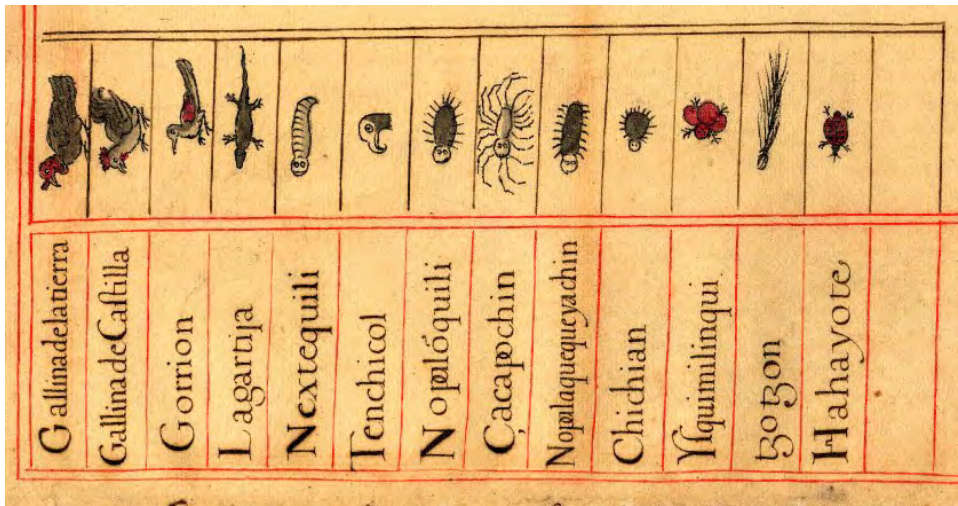 Gallinadelatierra
GallinadeCastilla
Gorrion
Lagartija
Nextequili
Tenchicol
Nopilóquili
Çacapochin
Nopiilaquequeyachin
Chichian
Ylquimilinqui
Hahayote